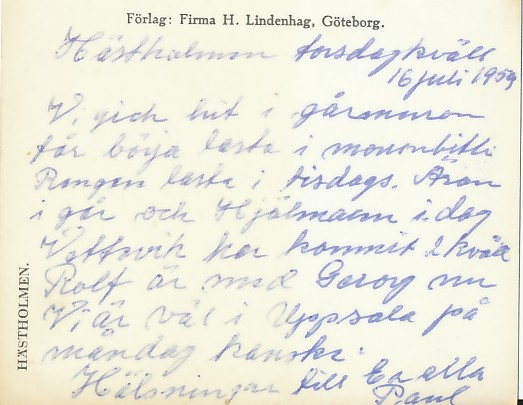 Förlag: Firma H. Lindenhag, Göteborg.
Hästholmen torsdagkväll
16 juli 1959
Vi gick hit i går
får börja lasta i morronbitti
Ringen lasta i tisdags. Äran
i går och Hjälmaren i dag
Vettsvik har kommit i kväll
Rolf är med Georg nu
Vi är väl i Uppsala på
måndag kanske.
Hälsningar till Er alla
Paul
HÄSTHOLMEN.